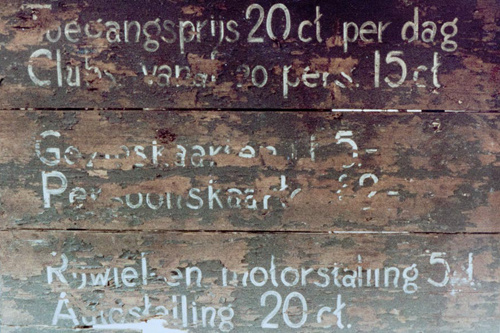 Toegangsprijs 20 ct per dag
Clubs vanaf 20 pers. 15 ct
Gezinskaarten f 5,-
Persoonskaart
Rijwiel- en motorstalling 5 ct
Autostalling 20 ct.